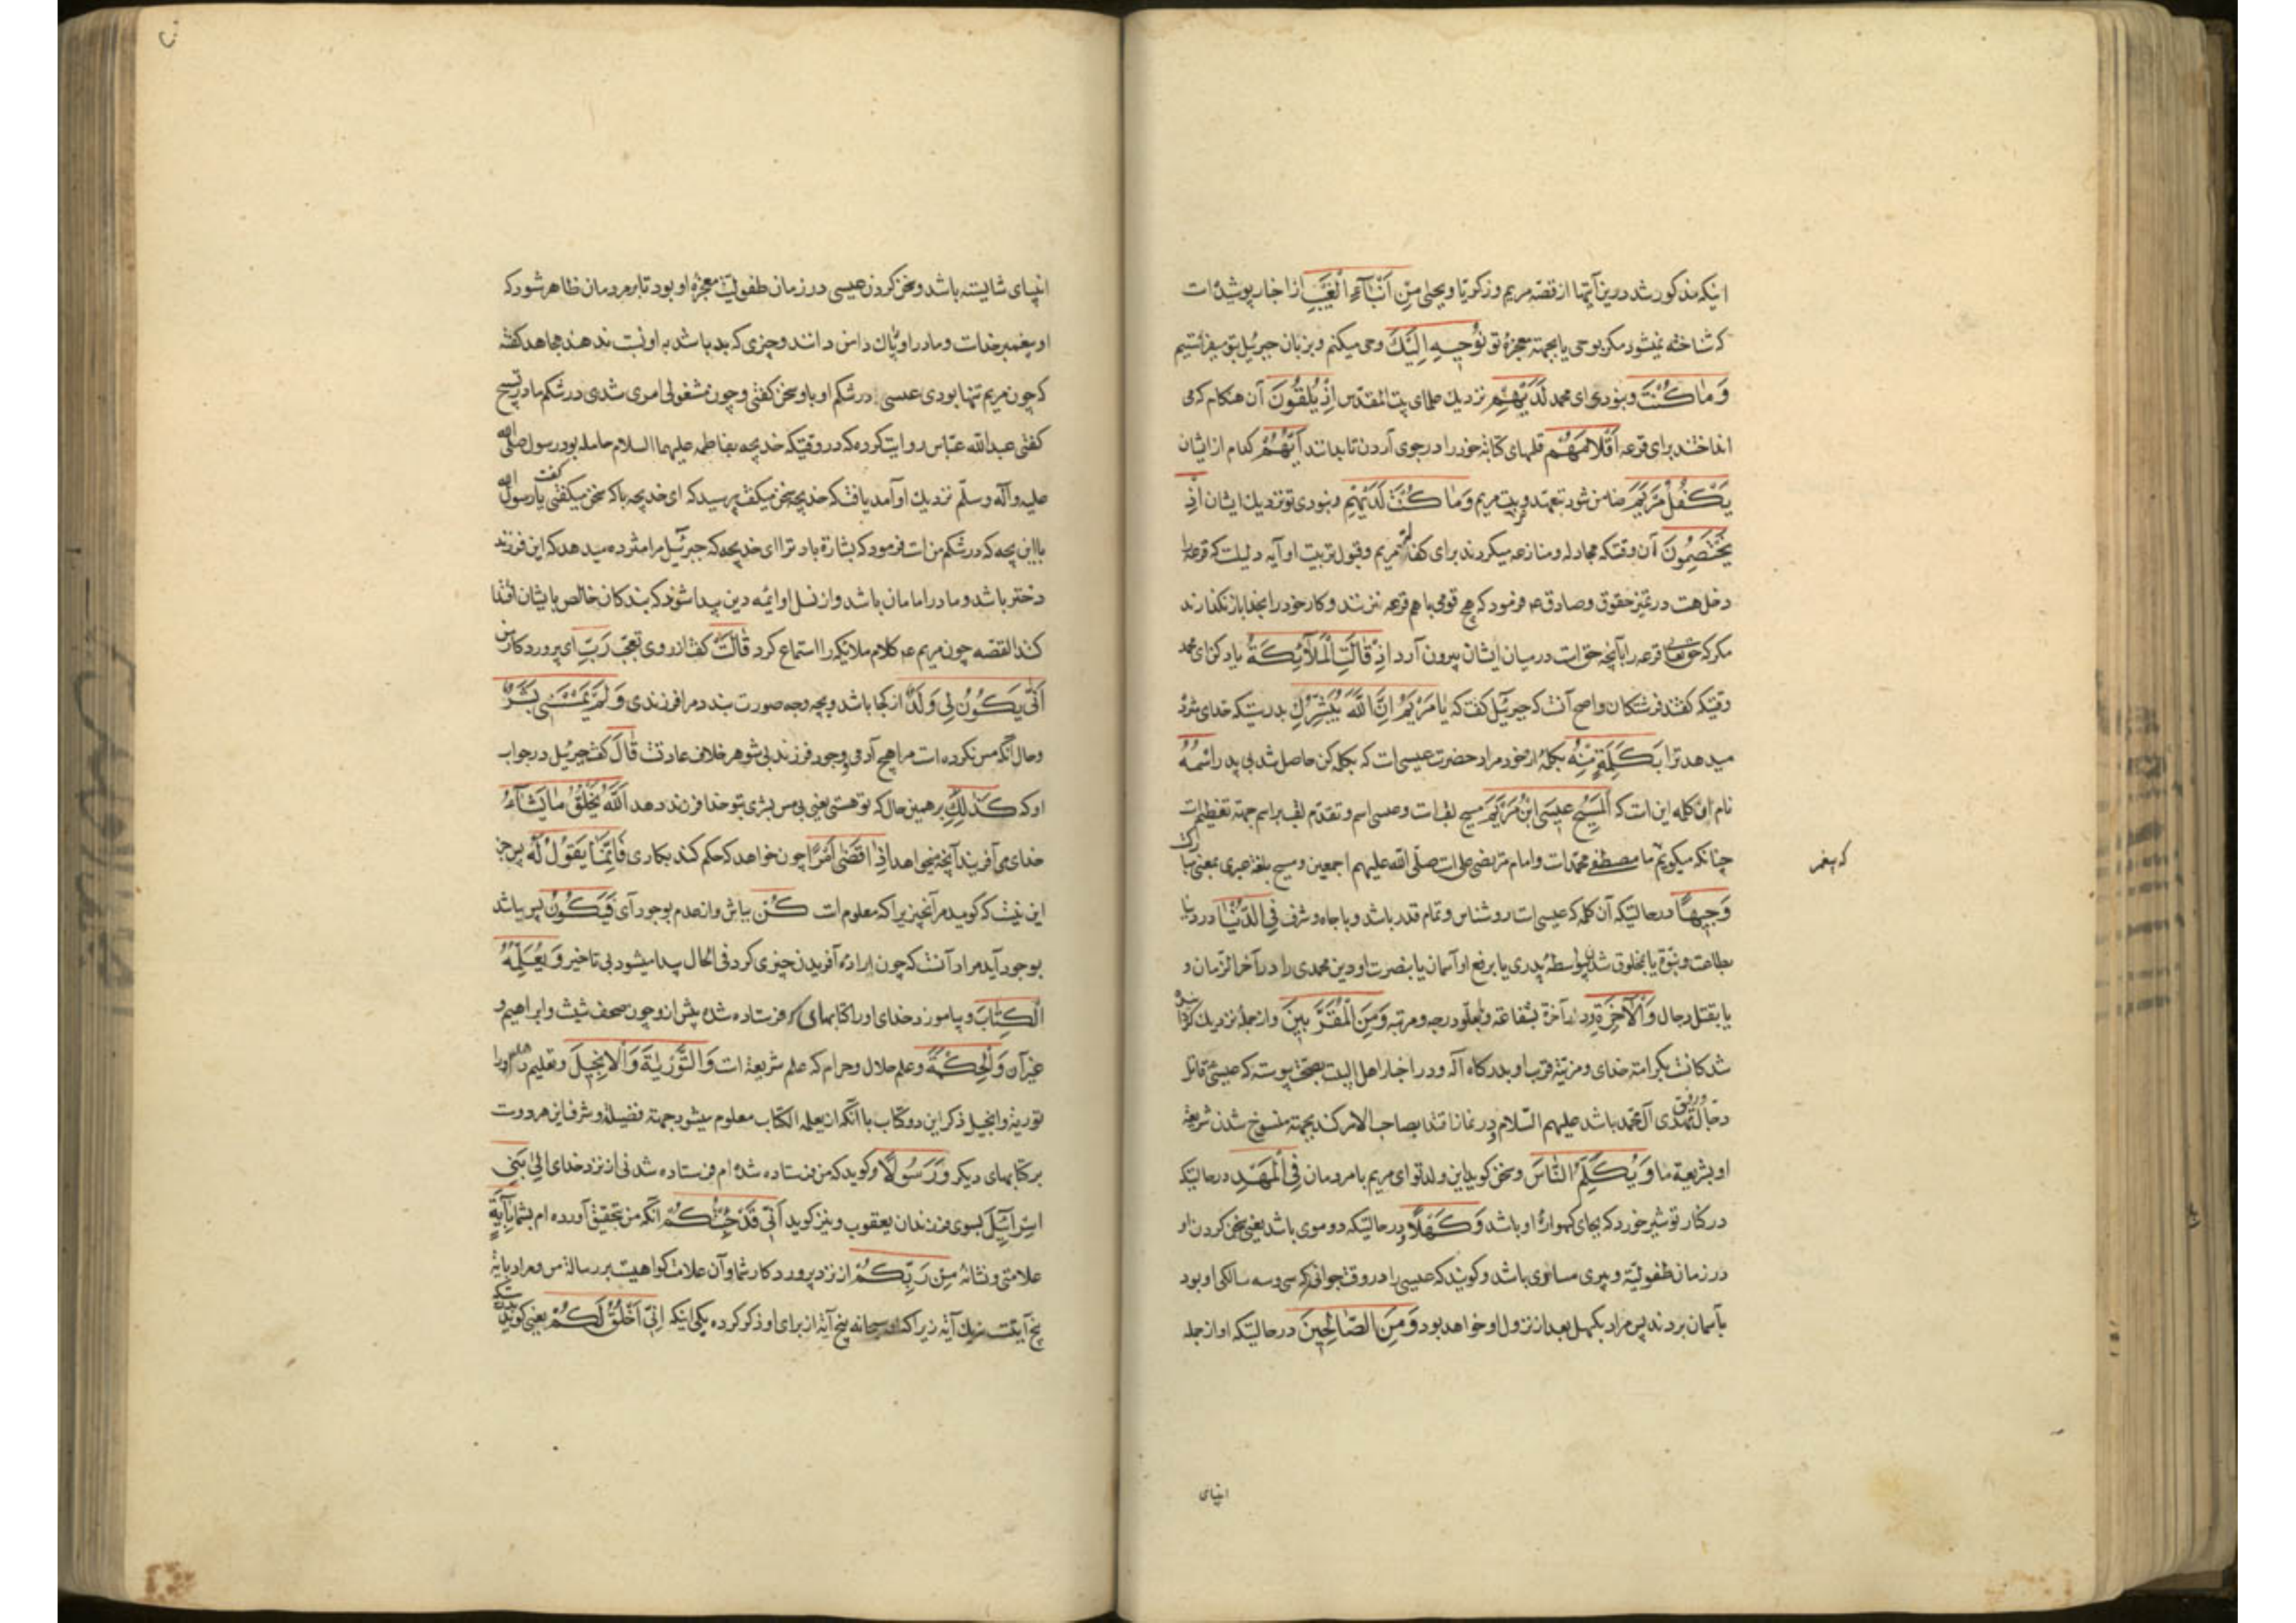 اینکه مذکور شد درین آیتها از قصّه مریم و زکریّا و یحیی مِنْ اَنْبَآءِ الْغَیْبِ از اخبار پوشیده است
که شناخته نمیشود مکر بوحی یا بجهته معجزهٔ تو نُوْحِیهِ اِلَیْكَ وحی میکنم و بزبان جبرئیل بتو میفرستیم
وَمٰا كُنْتَ و نبودی ای محمد لَدَیْهِمْ نزدیك علمای بیت المقدّس اِذْ یُلْقُونَ آن هنكام كه می
انداختند برای قرعه اَقْلامَهُمْ قلمهای كتابة خود را در جوی آردن تا بدانند اَیُّهُمْ كدام از ایشان
یَكْفُلُ مَرْیَمَ ضامن شود بتعهد و تربیت مریم وَمٰا كُنْتَ لَدَیْهِمْ و نبودی تو نزدیك ایشان اِذْ
یَخْتَصِمُونَ آن وقتكه مجادله و منازعه میكردند برای كفالة مریم و قبول تربیت او آیه دلیلست كه قرعه را
دخل هست در تمیز حقوق و صادق ع فرمود كه هیچ قومی با هم قرعه نزنند و كار خود را بخدا باز نكذارند
مكر كه حق تعالی قرعه را بآنچه حق است در میان ایشان بیرون آرد اِذْ قٰالَتِ الْمَلآئِكَةُ یاد كن ای محمد
وقتیكه كفتند فرشتكان و اصح آنست كه جبرئیل كفت كه یٰا مَرْیَمُ اِنَّ اللّٰهَ یُبَشِّرُكِ بدرستیكه خدای مژده
میدهد ترا بِكَلِمَةٍ مِنْهُ بكلمهٔ از خود مراد حضرت عیسی است كه بكلمه كن حاصل شد بی پدر اسْمُهُ
نام اون كلمه این است كه الْمَسِیحُ عِیسَی ابْنُ مَرْیَمَ مسیح لقبست و عیسی اسم و تقدّم لقب بر اسم جهته تعظیم است
چنانكه میكویم ما مصطفی محمّد است و امام مرتضی علی است صلّی الله علیهم اجمعین و مسیح بلغة عبری بمعنی مبارك
كه پیغمبر
وَجِیهاً در حالتیكه آن كلمه كه عیسی است روشناس و تمام قدر باشد و با جاه و شرف فِی الدُّنْیٰا در دنیا
بطاعت و نبوّة یا بمخلوق شدن بواسطهٔ پدری یا برفع او آسمان یا بنصرت او دین محمدی را در آخر الزمان و
یا بقتل دجال وَالْآخِرَةِ و در آخرة بشفاعة و بعلوّ درجه و مرتبه وَمِنَ الْمُقَرَّبِینَ و از جمله نزدیك كردانیده
شدكانست بكرامة خدای و مزیّة قرب او بدركاه اله و در اخبار اهل البیت بصحّت پیوسته كه عیسی قاتل
دجال و رفیق مهدی آل محمّد باشد علیهم السّلام و در نماز اقتدا بصاحب الامر كند بجهته منسوخ شدن شریعة
او بشریعة ما وَیُكَلِّمُ النّٰاسَ و سخن كوید این ولد تو ای مریم با مردمان فِی الْمَهْدِ در حالتیكه
در كنار تو شیر خورد كه بجای كهوارهٔ او باشد وَكَهْلاً و در حالتیكه دو موی باشد یعنی سخن كردن او
در زمان طفولیّة و پیری مساوی باشد و كویند كه عیسی را در وقت جوانی كه سی و سه سالكی او بود
بآسمان بردند پس مراد بكهل بعد از نزول او خواهد بود وَمِنَ الصّٰالِحِینَ در حالتیكه او از جمله
انبیای
انبیای شایسته باشد و سخن كردن عیسی در زمان طفولیّت معجزهٔ او بود تا بر مردمان ظاهر شود كه
او پیغمبر خداست و مادر او پاك دامن دانند و چیزی كه بد باشد به او نسبت ندهند مجاهد كفته
كه چون مریم تنها بودی عیسی در شكم او با او سخن كفتی و چون مشغول امری شدی در شكم مادر تسبیح
كفتی عبدالله عبّاس روایت كرده كه در وقتیكه خدیجه بفاطمه علیهما السلام حامله بود رسول صلی الله
علیه و آله و سلّم نزدیك او آمد یافت كه خدیجه سخن میكفت پرسید كه ای خدیجه با كه سخن میكفتی كفت یا رسول الله
با این بچه كه در شكم من است فرمود كه بشارة باد ترا ای خدیجه كه جبرئیل مرا مژده میدهد كه این فرزند
دختر باشد و مادر امامان باشد و از نسل او ائمه دین پیدا شوند كه بندكان خالص بایشان اقتدا
كند القصّه چون مریم ع كلام ملائیكه را استماع كرد قٰالَتْ كفت از روی تعجّب رَبِّ ای پروردكار من
اَنّٰی یَكُونُ لِی وَلَدٌ از كجا باشد و بچه وجه صورت بندد مرا فرزندی وَلَمْ یَمْسَسْنِی بَشَرٌ
و حال آنكه مس نكرده است مرا هیچ آدمی و وجود فرزند بی شوهر خلاف عادتست قٰالَ كفت جبرئیل در جواب
او كه كَذٰلِكِ بر همین حال كه تو هستی یعنی بی مس بشری بتو خدا فرزند دهد اللّٰهُ یَخْلُقُ مٰا یَشٰآءُ
خدای می آفریند آنچه میخواهد اِذٰا قَضٰی اَمْرًا چون خواهد كه حكم كند بكاری فَاِنَّمٰا یَقُولُ لَهُ پس جز
این نیست كه كوید مر آنچیز را كه معلوم است كُنْ بباش و از عدم بوجود آی فَیَكُونُ پس بباشد
بوجود آید مراد آنست كه چون ارادهٔ آفریدن چیزی كرد فی الحال پیدا میشود بی تاخیر وَیُعَلِّمُهُ
الْكِتٰابَ و بیاموزد خدای او را كتابهای كه فرستاده شده پیش ازو چون صحف شیث و ابراهیم و
غیر آن وَالْحِكْمَةَ و علم حلال و حرام كه علم شریعة است وَالتَّوْرٰیةَ وَالْاِنْجِیلَ و تعلیم دهد او را
توریة و انجیل ذكر این دو كتاب با آنكه از یعلمه الكتاب معلوم میشود جهته فضیلة و شرف این هر دوست
بر كتابهای دیكر وَرَسُولًا و كوید كه من فرستاده شده ام فرستاده شدنی از نزد خدای اِلٰی بَنِی
اِسْرٰآئِیلَ بسوی فرزندان یعقوب و نیز كوید اَنِّی قَدْ جِئْتُكُمْ آنكه من بتحقیق آورده ام بشما بِآیَةٍ
علامتی و نشانهٔ مِنْ رَبِّكُمْ از نزد پروردكار شما و آن علامت كواهیست بر رسالة من و مراد بایة
پنج آیتست نه یك آیه زیرا كه او سبحانه پنج آیة از برای او ذكر كرده یكی اینكه اِنِّی اَخْلُقُ لَكُمْ یعنی كوید بدرستیكه